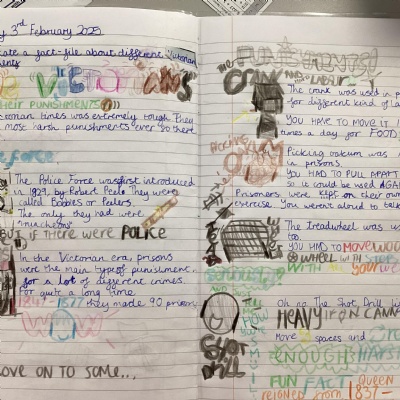 y 3rd February 2025
ate a fact-file about different Victorian
ments
THE VICTORIANS
THEIR PUNISHMENTS
torian times was extremely tough. They
most harsh punishments ever so there
force
The Police Force was first introduced
in 1929, by Robert Peele They were
called Bobbies or Peelers.
The only they had were
truncheons
BUT IF THERE WERE POLICE
In the Victorian era, prisons
were the main type of punishment
for a lot of different crimes.
For quite a long time
1842-1877 they made 90 prison
WOW
OVE ON TO SOME...
PUNISHMENTS!
THE CRANK AND LABOUR
The crank was used in p
for different kind of la
YOU HAVE TO MOVE IT
times a day for FOOD
PICKING OAKUM
Picking oakum was
in prisons.
YOU HAD TO PULL APART
so it could be used AGAI
Prisoners were kept on their own
exercise. You weren't aloud to talk
The treadwheel was u
YOU HAD TO MOVE WOO
WHEEL WITH STEPS
WITH ALL YOUR WE
SHOT DRILL
Oh no The Shot Drill
HEAVY IRON CANNO
Move 3 spaces and
ENOUGH HARSH
FUN FACT QUEEN
reigned from 1837-